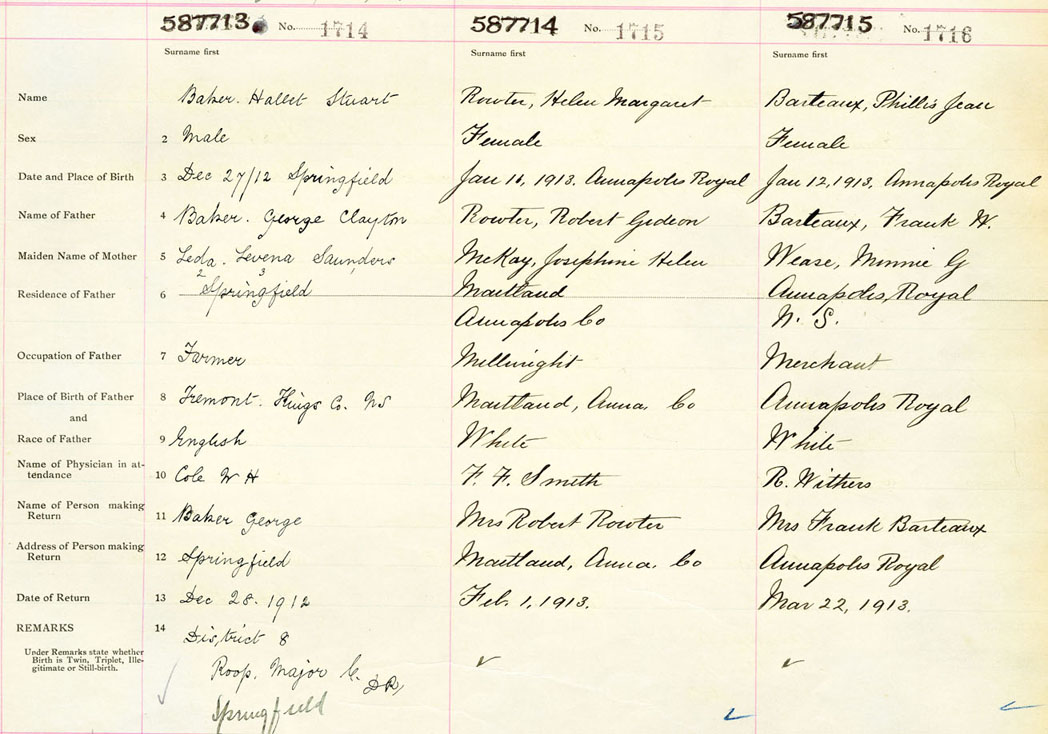 587713 No. 1714 587714 No. 1715 587715 No. 1716
Surname first Surname first Surname first
Name Baker. Hallet Stuart Rowter, Helen Margaret Barteaux, Phillis Jean
Sex 2 Male Female Female
Date and Place of Birth 3 Dec 27/12 Springfield Jan 16, 1913. Annapolis Royal Jan 12, 1913, Annapolis Royal
Name of Father 4 Baker. George Clayton Rowter, Robert Gideon Barteaux, Frank W.
Maiden Name of Mother 5 Leda. Levena Saunders McKay, Josephine Helen Wease, Minnie G
2 3
Residence of Father 6 Springfield Maitland Annapolis Royal
Annapolis Co N. S.
Occupation of Father 7 Farmer Millwright Merchant
Place of Birth of Father 8 Tremont. Kings Co. NS Maitland, Anna. Co Annapolis Royal
and
Race of Father 9 English White White
Name of Physician in at-
tendance 10 Cole W H F. F. Smith R. Withers
Name of Person making
Return 11 Baker George Mrs Robert Rowter Mrs Frank Barteaux
Address of Person making
Return 12 Springfield Maitland, Anna. Co Annapolis Royal
Date of Return 13 Dec 28. 1912 Feb. 1, 1913. Mar 22, 1913.
REMARKS 14 District 8
Under Remarks state whether
Birth is Twin, Triplet, Ille-
gitimate or Still-birth.
Roop. Major C. DR,
Springfield